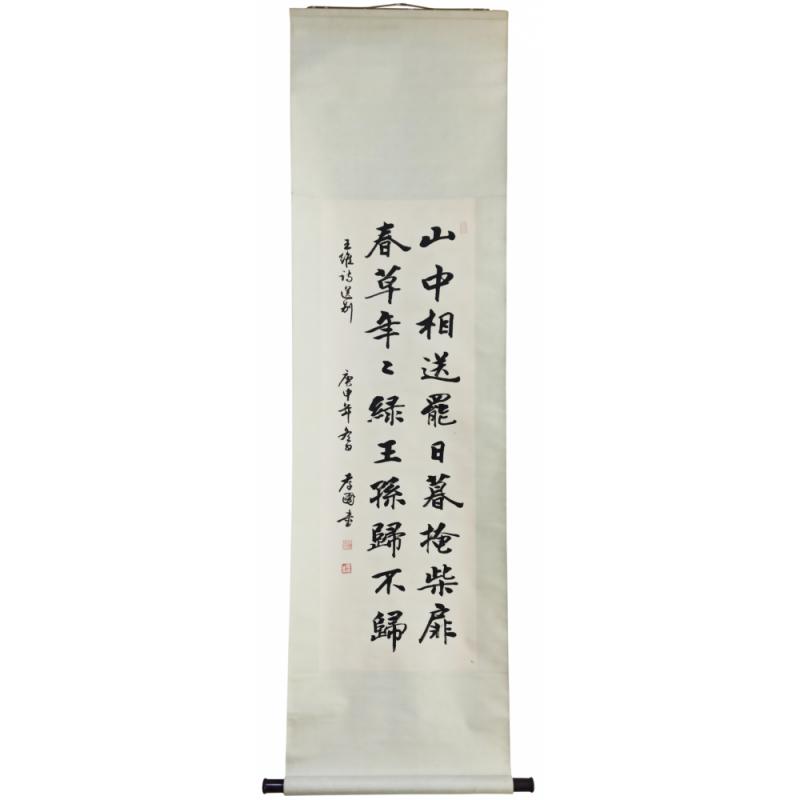 山中相送罷日暮掩柴扉
春草年〻綠王孫歸不歸
王維詩送別
庚申年
孝國書